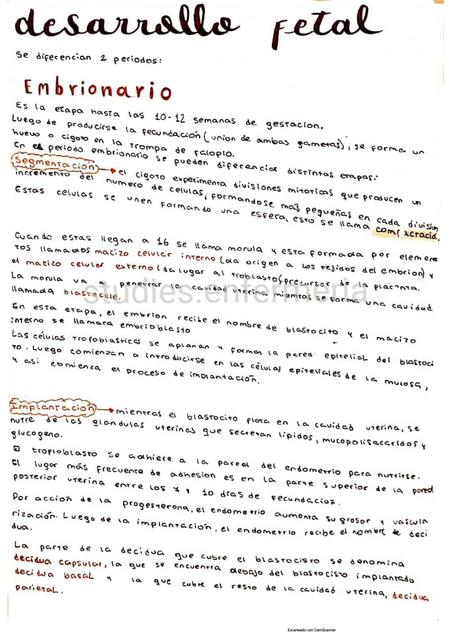 desarrollo fetal
Se diferencian 2 periodos:
Embrionario
Es la etapa hasta las 10-12 semanas de gestacion.
Luego de producirse la fecundación (union de ambas gametas), se forma un
huevo o cigoto en la trompa de falopio.
En el periodo embrionario se pueden diferenciar distintas etapas:
Segmentacion → el cigoto experimenta divisiones mitoticas que producen un
incremento del numero de celulas, formandose mas pequeñas en cada division
Estas celulas se unen formando una esfera, esto se llama
Cuando estas llegan a 16 se llama morula y esta formada por elemen
tos llamados macizo celular interno (da origen a los tejidos del embrion) y
el macizo celular externo (da lugar al troblasto) precursor de la placenta.
La morula va a penetrar la cavidad uterina mientras se forma una cavidad
llamada blastocele.
studies.enfermeria
En esta etapa, el embrion recibe el nombre de blastocito y el macizo
interno se llamara embrioblasto
Las células trofoblasticas se aplanan y forman la pared epitelial del blastoci
to. Luego comienzan a introducirse en las células epiteliales de la mucosa,
y asi comienza el proceso de implantación.
Implantacion → mientras el blastocito flota en la cavidad uterina, se
nutre de las glandulas uterinas que secretan lipidos, mucopolisacaridos y
glucogeno.
El troploblasto se adhiere a la pared del endometrio para nutrirse.
El lugar más frecuente de adhesion es en la parte superior de la pared
posterior uterina entre los 7 y 10 dias de fecundacion.
Por acción de la progesterona, el endometrio aumenta su grosor y vascula
rización. Luego de la implantación, el endometrio recibe el nombre de deci
dua.
La parte de la decidua que cubre el blastocisto se denomina
decidua capsular, la que se encuentra debajo del blastocisto implantado
decidua basal y la que cubre el resto de la cavidad uterina, decidua
parietal.
Escaneado con CamScanner